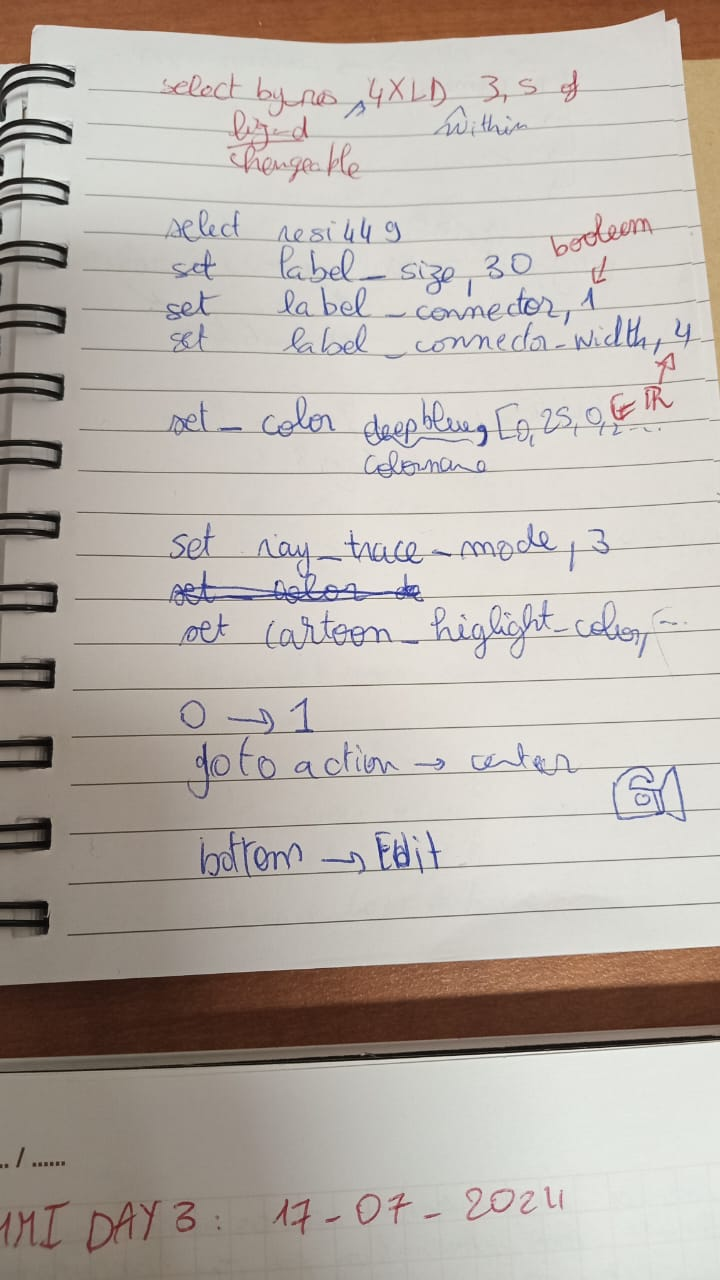 select by res 4XLD 3,5 of
within
ligand
changeable
select resi 449
set label_size, 30
booleem
set label_connector, 1
set label_connecto_width, 4
∈ IR
set_color deepblue, [0,25,0,2...
colorname
set ray_trace_mode, 3
set color de
set cartoon_higlight_color, ...
0 → 1
go to action → center
bottom → Edit
.. / ......
DAY 3: 17-07-2024